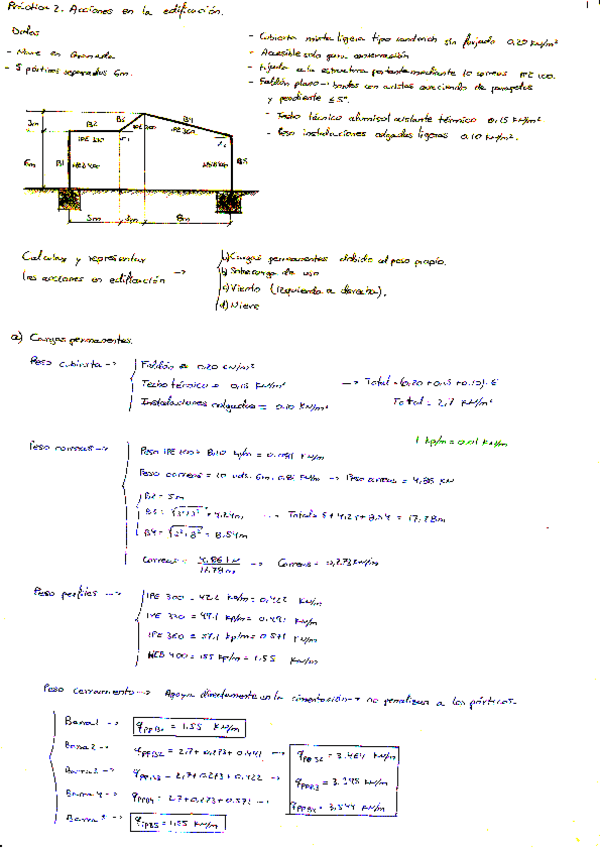 Práctica 2. Acciones en la edificación.
1
Datos
- Nieve en Granada
- 5 pórticos separados 6m.
- Cubierta ligera tipo sandwich sin forjado 0.20 kN/m²
- Accesible solo para conservación
- a la estructura portante mediante 10 correas IPE 100.
- Faldón plano -> bordes con aristas
y pendiente ≤ 5º.
- Techo técnico aislante térmico 0.15 kN/m²
- Peso instalaciones colgadas ligeras 0.10 kN/m².
3m
6m
B2
B3
B4
B1
B5
IPE 360
HEB 400
5m
3m
8m
Calcular y representar
las acciones en edificación ->
a) Cargas permanentes debido al peso propio.
b) Sobrecarga de uso
c) Viento (izquierda a derecha).
d) Nieve
a) Cargas permanentes.
Peso cubierta ->
Faldón = 0.20 kN/m²
Techo técnico = 0.15 kN/m²
Instalaciones colgadas = 0.10 kN/m²
-> Total = (0.20 + 0.15 + 0.10) · 6
Total = 2,7 kN/m²
1 kp/m = 0.01 kN/m
Peso correas ->
Peso IPE 100 = 8.10 kp/m = 0.081 kN/m
Peso correas = 10 uds. 6m. kN/m -> Peso correas = 4,86 kN
B2 = 5m
B3 = √3²+3² = 4.24m
B4 = √3²+8² = 8.54m
Total = 5 + 4.24 + 8.54 = 17.78m
Correas = 4.86 kN / 17.78m -> Correas = 0,273 kN/m
Peso perfiles ->
IPE 300 = 42.2 kp/m = 0.422 kN/m
IPE 330 = 49.1 kp/m = 0.491 kN/m
IPE 360 = 57.1 kp/m = 0.571 kN/m
HEB 400 = 155 kp/m = 1.55 kN/m
Peso cerramiento -> Apoya directamente en la cimentación -> no penaliza a los pórticos.
Barra 1 -> qPPB1 = 1.55 kN/m
Barra 2 -> qPPB2 = 2.7 + 0.273 + 0.491 -> qPPB2 = 3.464 kN/m
Barra 3 -> qPPB3 = 2.7 + 0.273 + 0.422 -> qPPB3 = 3.395 kN/m
Barra 4 -> qPPB4 = 2.7 + 0.273 + 0.571 -> qPPB4 = 3.544 kN/m
Barra 5 -> qPPB5 = 1.55 kN/m